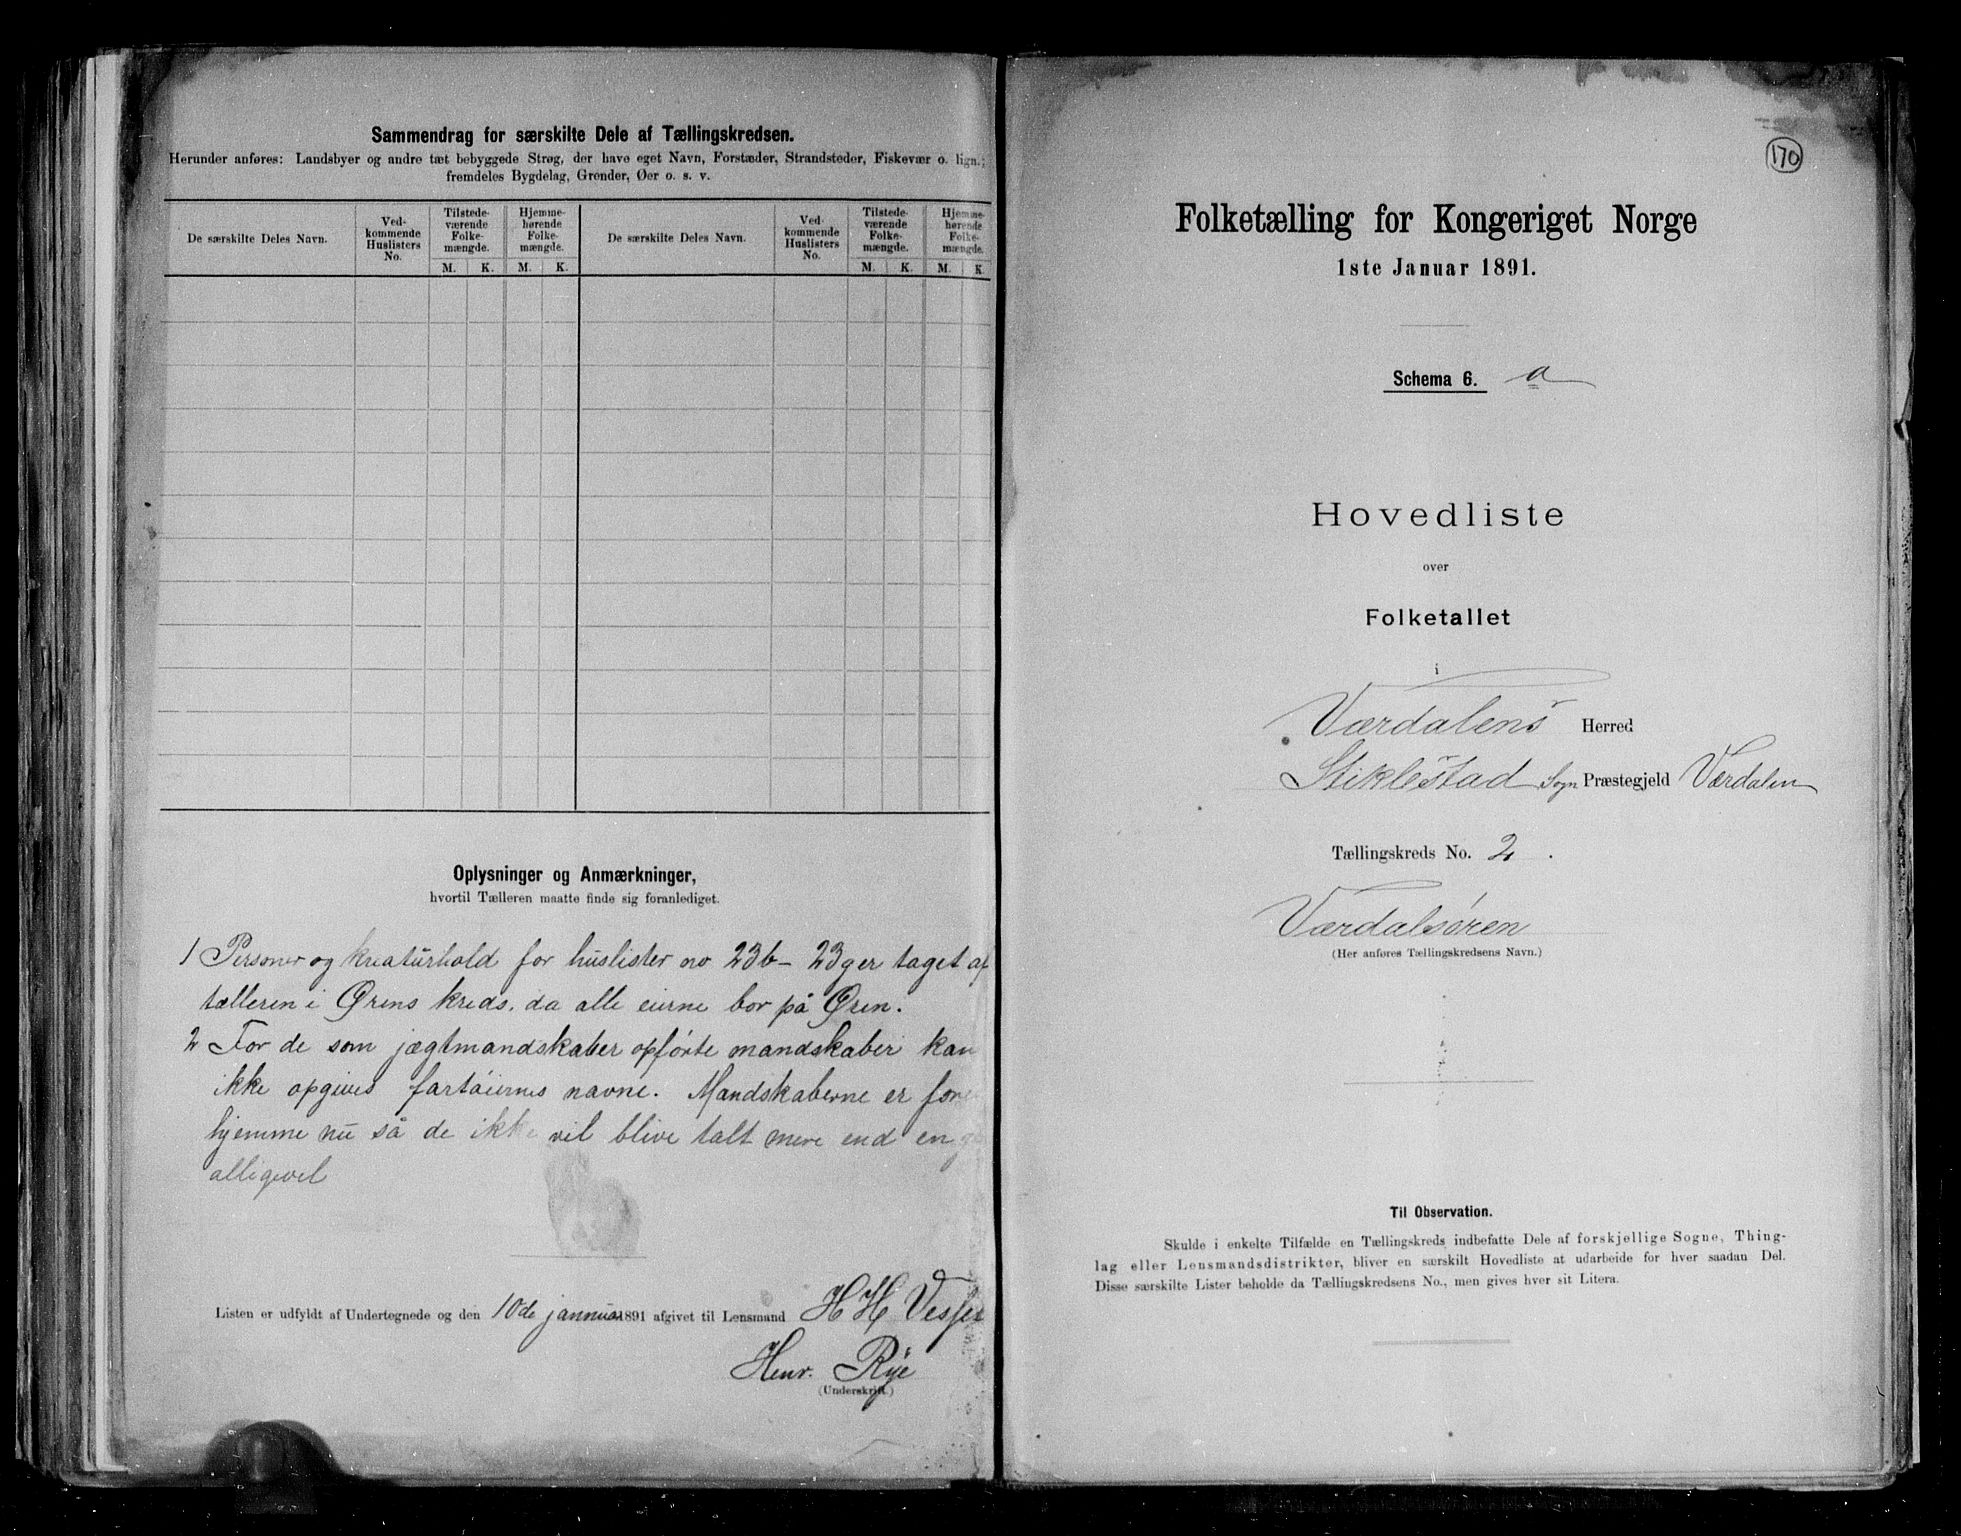 Sammendrag for særskilte Dele af Tællingskredsen.
Herunder anføres: Landsbyer og andre tæt bebyggede Strøg, der have eget Navn, Forstæder, Strandsteder, Fiskevær o. lign.;
fremdeles Bygdelag, Grender, Øer o. s. v.
De særskilte Deles Navn.
Ved-
kommende
Huslisters
No.
Tilstede-
værende
Folke-
mængde.
M. K.
Hjemme-
hørende
Folke-
mængde.
M. K.
De særskilte Deles Navn.
Ved-
kommende
Huslisters
No.
Tilstede-
værende
Folke-
mængde.
M. K.
Hjemme-
hørende
Folke-
mængde.
M. K.
Oplysninger og Anmærkninger,
hvortil Tælleren maatte finde sig foranlediget.
1 Personer og kreaturhold for huslister no 23b - 23g er taget af
tælleren i Ørens kreds, da alle eierne bor på Øren.
2 For de som jægtmandskaber opførte mandskaber kan
ikke opgives fartøiernes navne. Mandskaberne er
hjemme nu så de ikke vil blive talt mere end en
alligevel
Listen er udfyldt af Undertegnede og den 10de januar 1891 afgivet til Lensmand H H Vesse
Henr. Rye
(Underskrift.)
170
Folketælling for Kongeriget Norge
1ste Januar 1891.
Schema 6. a
Hovedliste
over
Folketallet
i
Værdalens Herred
Stiklestad Sogn Præstegjeld Værdalen
Tællingskreds No. 2.
Værdalsøren
(Her anføres Tællingskredsens Navn.)
Til Observation.
Skulde i enkelte Tilfælde en Tællingskreds indbefatte Dele af forskjellige Sogne, Thing-
lag eller Lensmandsdistrikter, bliver en særskilt Hovedliste at udarbeide for hver saadan Del.
Disse særskilte Lister beholde da Tællingskredsens No., men gives hver sit Litera.